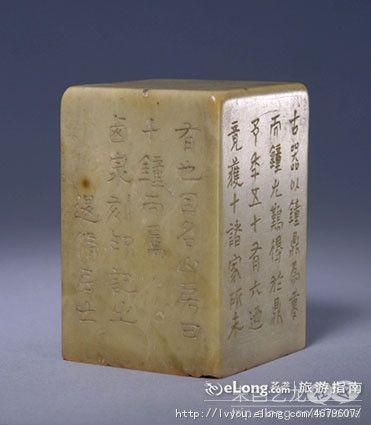 古器以鐘鼎為重
而鐘尤難得於鼎
予年五十有六迺
竟獲十諸家所未
有也因名山居曰
十鐘而屬
西泉刻印記之
退脩居士
eLong.com 旅游指南
http://lvyou.elong.com/4679607/